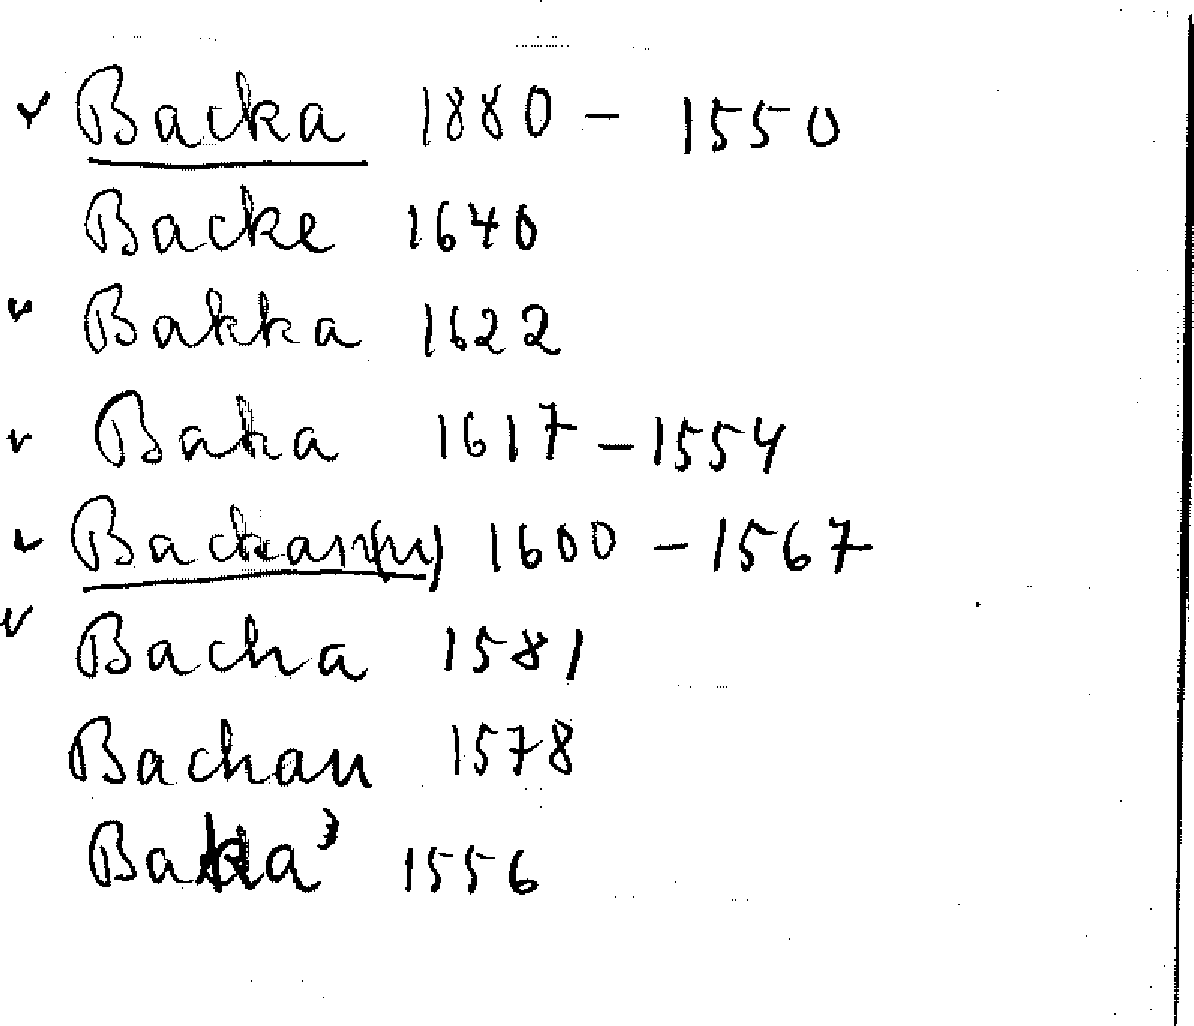 ✓ Backa 1880 – 1550
Backe 1640
✓ Bakka 1622
✓ Baka 1617 – 1554
✓ 1600 – 1567
✓ Bacha 1581
Bachan 1578
1556